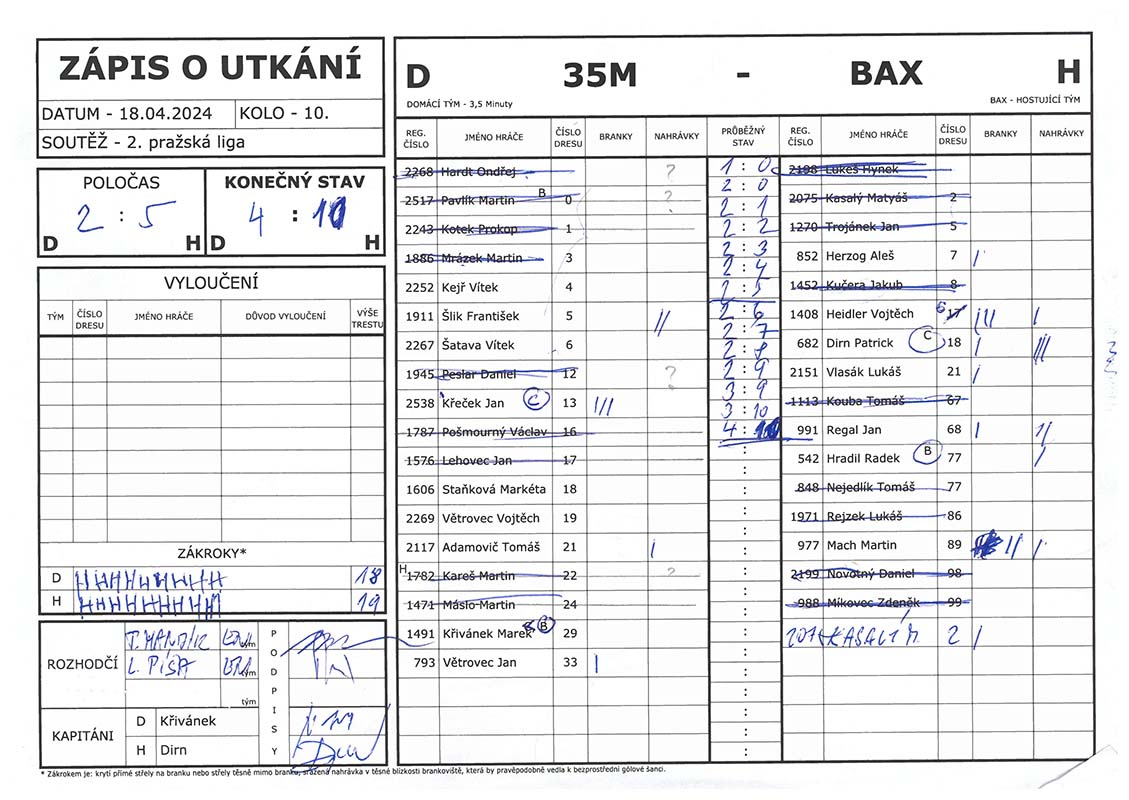 ZÁPIS O UTKÁNÍ
DATUM - 18.04.2024 KOLO - 10.
SOUTĚŽ - 2. pražská liga
POLOČAS
2 : 5
D H
KONEČNÝ STAV
4 : 10
D H
VYLOUČENÍ
TÝM ČÍSLO DRESU JMÉNO HRÁČE DŮVOD VYLOUČENÍ VÝŠE TRESTU
ZÁKROKY*
D 18
H 19
ROZHODČÍ
tým
L. PÍŠA tým
tým
PODPISY
KAPITÁNI
D Křivánek
H Dirn
D 35M - BAX H
DOMÁCÍ TÝM - 3,5 Minuty BAX - HOSTUJÍCÍ TÝM
REG. ČÍSLO JMÉNO HRÁČE ČÍSLO DRESU BRANKY NAHRÁVKY PRŮBĚŽNÝ STAV REG. ČÍSLO JMÉNO HRÁČE ČÍSLO DRESU BRANKY NAHRÁVKY
2268 Hardt Ondřej ?
2517 Pavlík Martin B 0 ?
2243 Kotek Prokop 1
1886 Mrázek Martin 3
2252 Kejř Vítek 4
1911 Šlik František 5 //
2267 Šatava Vítek 6
1945 Peslar Daniel 12 ?
2538 Křeček Jan C 13 ///
1787 Pošmourný Václav 16
1576 Lehovec Jan 17
1606 Staňková Markéta 18
2269 Větrovec Vojtěch 19
2117 Adamovič Tomáš 21 /
H 1782 Kareš Martin 22 ?
1471 Máslo Martin 24
1491 Křivánek Marek B 29
793 Větrovec Jan 33 |
1 : 0
2 : 0
2 : 1
2 : 2
2 : 3
2 : 4
2 : 5
2 : 6
2 : 7
2 : 8
2 : 9
3 : 9
3 : 10
4 : 10
2198 Lukeš Hynek
2075 Kasalý Matyáš 2
1270 Trojánek Jan 5
852 Herzog Aleš 7 /
1452 Kučera Jakub 8
1408 Heidler Vojtěch 6 17 /// /
682 Dirn Patrick C 18 / ///
2151 Vlasák Lukáš 21 /
1113 Kouba Tomáš 67
991 Regal Jan 68 / //
542 Hradil Radek B 77 /
848 Nejedlík Tomáš 77
1971 Rejzek Lukáš 86
977 Mach Martin 89 // /
2199 Novotný Daniel 98
988 Míkovec Zdeněk 99
207 KASALÝ M. 2 /
* Zákrokem je: krytí přímé střely na branku nebo střely těsně mimo branku, sražená nahrávka v těsné blízkosti brankoviště, která by pravěpodobně vedla k bezprostřední gólové šanci.